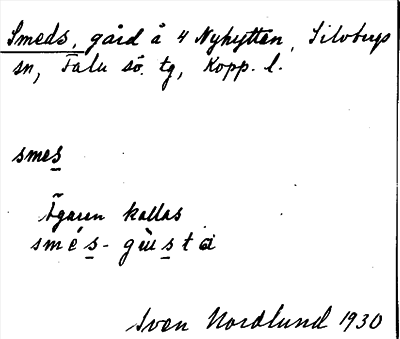 Smeds, gård å 4 Nyhyttan, Silvbergs
sn, Falu sö. tg, Kopp. l.
smes
Ägaren kallas
smés-gùsta
Sven Nordlund 1930